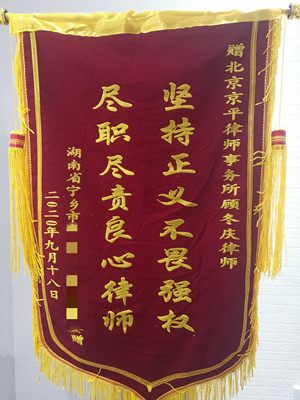 赠北京京平律师事务所顾冬庆律师
坚持正义不畏强权
尽职尽责良心律师
湖南省宁乡市 赠
二〇二〇年九月十八日